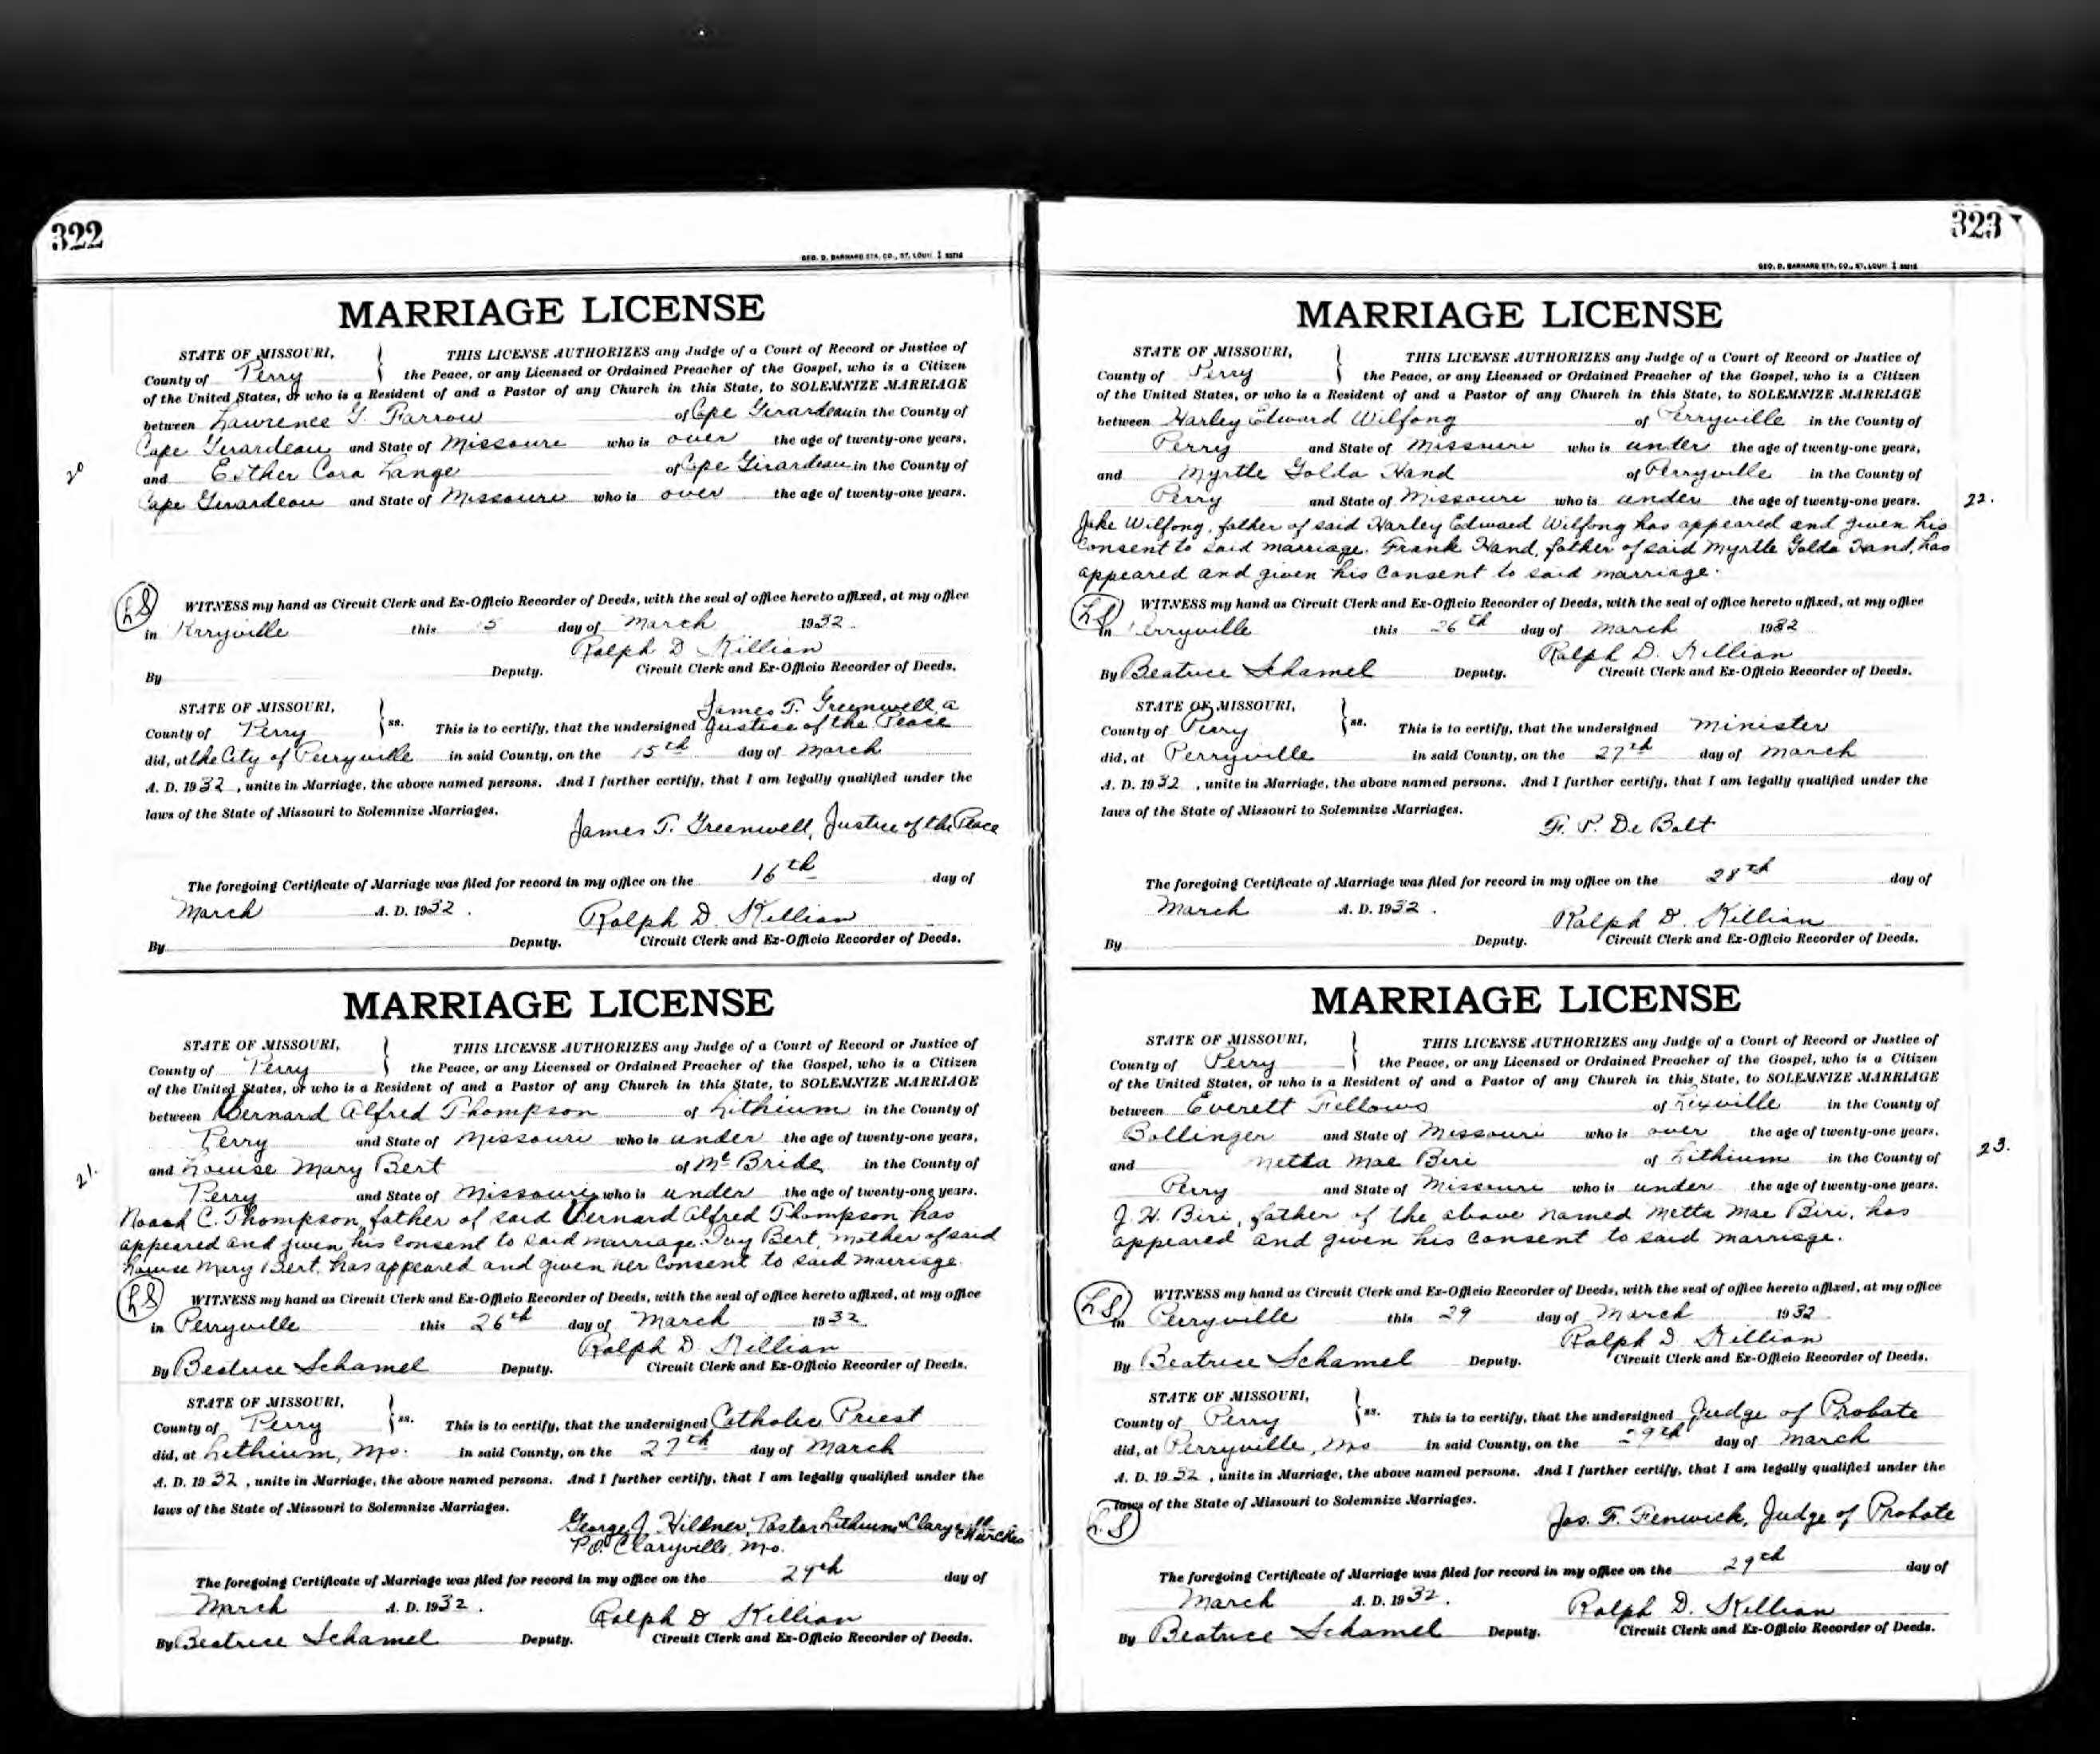 322
GEO. D. BARNARD STA. CO., ST. LOUIS
MARRIAGE LICENSE
STATE OF MISSOURI,
County of Perry
THIS LICENSE AUTHORIZES any Judge of a Court of Record or Justice of
the Peace, or any Licensed or Ordained Preacher of the Gospel, who is a Citizen
of the United States, or who is a Resident of and a Pastor of any Church in this State, to SOLEMNIZE MARRIAGE
between Lawrence G. Farrow of Cape Girardeau in the County of
Cape Girardeau and State of Missouri who is over the age of twenty-one years,
20
and Esther Cora Lange of Cape Girardeau in the County of
Cape Girardeau and State of Missouri who is over the age of twenty-one years.
LS
WITNESS my hand as Circuit Clerk and Ex-Officio Recorder of Deeds, with the seal of office hereto affixed, at my office
in Perryville this 15 day of March 1932.
Ralph D Killian
By Deputy. Circuit Clerk and Ex-Officio Recorder of Deeds.
STATE OF MISSOURI,
County of Perry ss.
James T. Greenwell, a
This is to certify, that the undersigned Justice of the Peace
did, at the City of Perryville in said County, on the 15th day of March
A. D. 1932, unite in Marriage, the above named persons. And I further certify, that I am legally qualified under the
laws of the State of Missouri to Solemnize Marriages.
James T. Greenwell, Justice of the Peace
The foregoing Certificate of Marriage was filed for record in my office on the 16th day of
March A. D. 1932.
Ralph D. Killian
By Deputy. Circuit Clerk and Ex-Officio Recorder of Deeds.
MARRIAGE LICENSE
STATE OF MISSOURI,
County of Perry
THIS LICENSE AUTHORIZES any Judge of a Court of Record or Justice of
the Peace, or any Licensed or Ordained Preacher of the Gospel, who is a Citizen
of the United States, or who is a Resident of and a Pastor of any Church in this State, to SOLEMNIZE MARRIAGE
between Vernard Alfred Thompson of Lithium in the County of
Perry and State of Missouri who is under the age of twenty-one years,
21.
and Louise Mary Bert of McBride in the County of
Perry and State of Missouri who is under the age of twenty-one years.
C. Thompson, father of said Vernard Alfred Thompson has
appeared and given his consent to said marriage. Ivy Bert, mother of said
Louise Mary Bert, has appeared and given her consent to said marriage.
LS
WITNESS my hand as Circuit Clerk and Ex-Officio Recorder of Deeds, with the seal of office hereto affixed, at my office
in Perryville this 26th day of March 1932.
Ralph D. Killian
By Beatrice Schamel Deputy. Circuit Clerk and Ex-Officio Recorder of Deeds.
STATE OF MISSOURI,
County of Perry ss.
This is to certify, that the undersigned Catholic Priest
did, at Lithium, Mo. in said County, on the 27th day of March
A. D. 1932, unite in Marriage, the above named persons. And I further certify, that I am legally qualified under the
laws of the State of Missouri to Solemnize Marriages.
George J. Hillner, Pastor Lithium & Claryville Churches
P.O. Claryville, Mo.
The foregoing Certificate of Marriage was filed for record in my office on the 29th day of
March A. D. 1932.
Ralph D Killian
By Beatrice Schamel Deputy. Circuit Clerk and Ex-Officio Recorder of Deeds.
323
GEO. D. BARNARD STA. CO., ST. LOUIS
MARRIAGE LICENSE
STATE OF MISSOURI,
County of Perry
THIS LICENSE AUTHORIZES any Judge of a Court of Record or Justice of
the Peace, or any Licensed or Ordained Preacher of the Gospel, who is a Citizen
of the United States, or who is a Resident of and a Pastor of any Church in this State, to SOLEMNIZE MARRIAGE
between Harley Edward Wilfong of Perryville in the County of
Perry and State of Missouri who is under the age of twenty-one years,
and Myrtle Golda Hand of Perryville in the County of
Perry and State of Missouri who is under the age of twenty-one years.
22.
Jake Wilfong, father of said Harley Edward Wilfong has appeared and given his
consent to said marriage. Frank Hand, father of said Myrtle Golda Hand, has
appeared and given his consent to said marriage.
LS
WITNESS my hand as Circuit Clerk and Ex-Officio Recorder of Deeds, with the seal of office hereto affixed, at my office
in Perryville this 26th day of March 1932
Ralph D. Killian
By Beatrice Schamel Deputy. Circuit Clerk and Ex-Officio Recorder of Deeds.
STATE OF MISSOURI,
County of Perry ss.
This is to certify, that the undersigned Minister
did, at Perryville in said County, on the 27th day of March
A. D. 1932, unite in Marriage, the above named persons. And I further certify, that I am legally qualified under the
laws of the State of Missouri to Solemnize Marriages.
F. P. De Bolt
The foregoing Certificate of Marriage was filed for record in my office on the 28th day of
March A. D. 1932.
Ralph D. Killian
By Deputy. Circuit Clerk and Ex-Officio Recorder of Deeds.
MARRIAGE LICENSE
STATE OF MISSOURI,
County of Perry
THIS LICENSE AUTHORIZES any Judge of a Court of Record or Justice of
the Peace, or any Licensed or Ordained Preacher of the Gospel, who is a Citizen
of the United States, or who is a Resident of and a Pastor of any Church in this State, to SOLEMNIZE MARRIAGE
between Everett Fellows of Lixville in the County of
Bollinger and State of Missouri who is over the age of twenty-one years,
23.
and Metta Mae Biri of Lithium in the County of
Perry and State of Missouri who is under the age of twenty-one years.
J. H. Biri, father of the above named Metta Mae Biri, has
appeared and given his consent to said marriage.
LS
WITNESS my hand as Circuit Clerk and Ex-Officio Recorder of Deeds, with the seal of office hereto affixed, at my office
in Perryville this 29 day of March 1932
Ralph D. Killian
By Beatrice Schamel Deputy. Circuit Clerk and Ex-Officio Recorder of Deeds.
STATE OF MISSOURI,
County of Perry ss.
This is to certify, that the undersigned Judge of Probate
did, at Perryville, Mo in said County, on the 29th day of March
A. D. 1932, unite in Marriage, the above named persons. And I further certify, that I am legally qualified under the
laws of the State of Missouri to Solemnize Marriages.
L.S
Jos. F. Fenwick, Judge of Probate
The foregoing Certificate of Marriage was filed for record in my office on the 29th day of
March A. D. 1932.
Ralph D. Killian
By Beatrice Schamel Deputy. Circuit Clerk and Ex-Officio Recorder of Deeds.